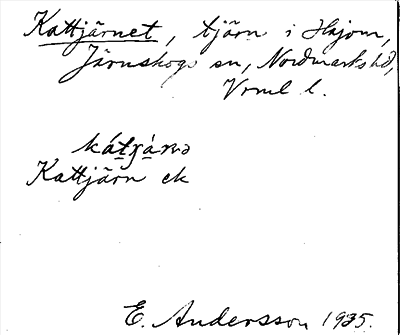 Kattjärnet, tjärn i Hajom,
Järnskogs sn, Nordmarks hd,
Vrml l.
Kattjärn ek
E. Andersson 1935.